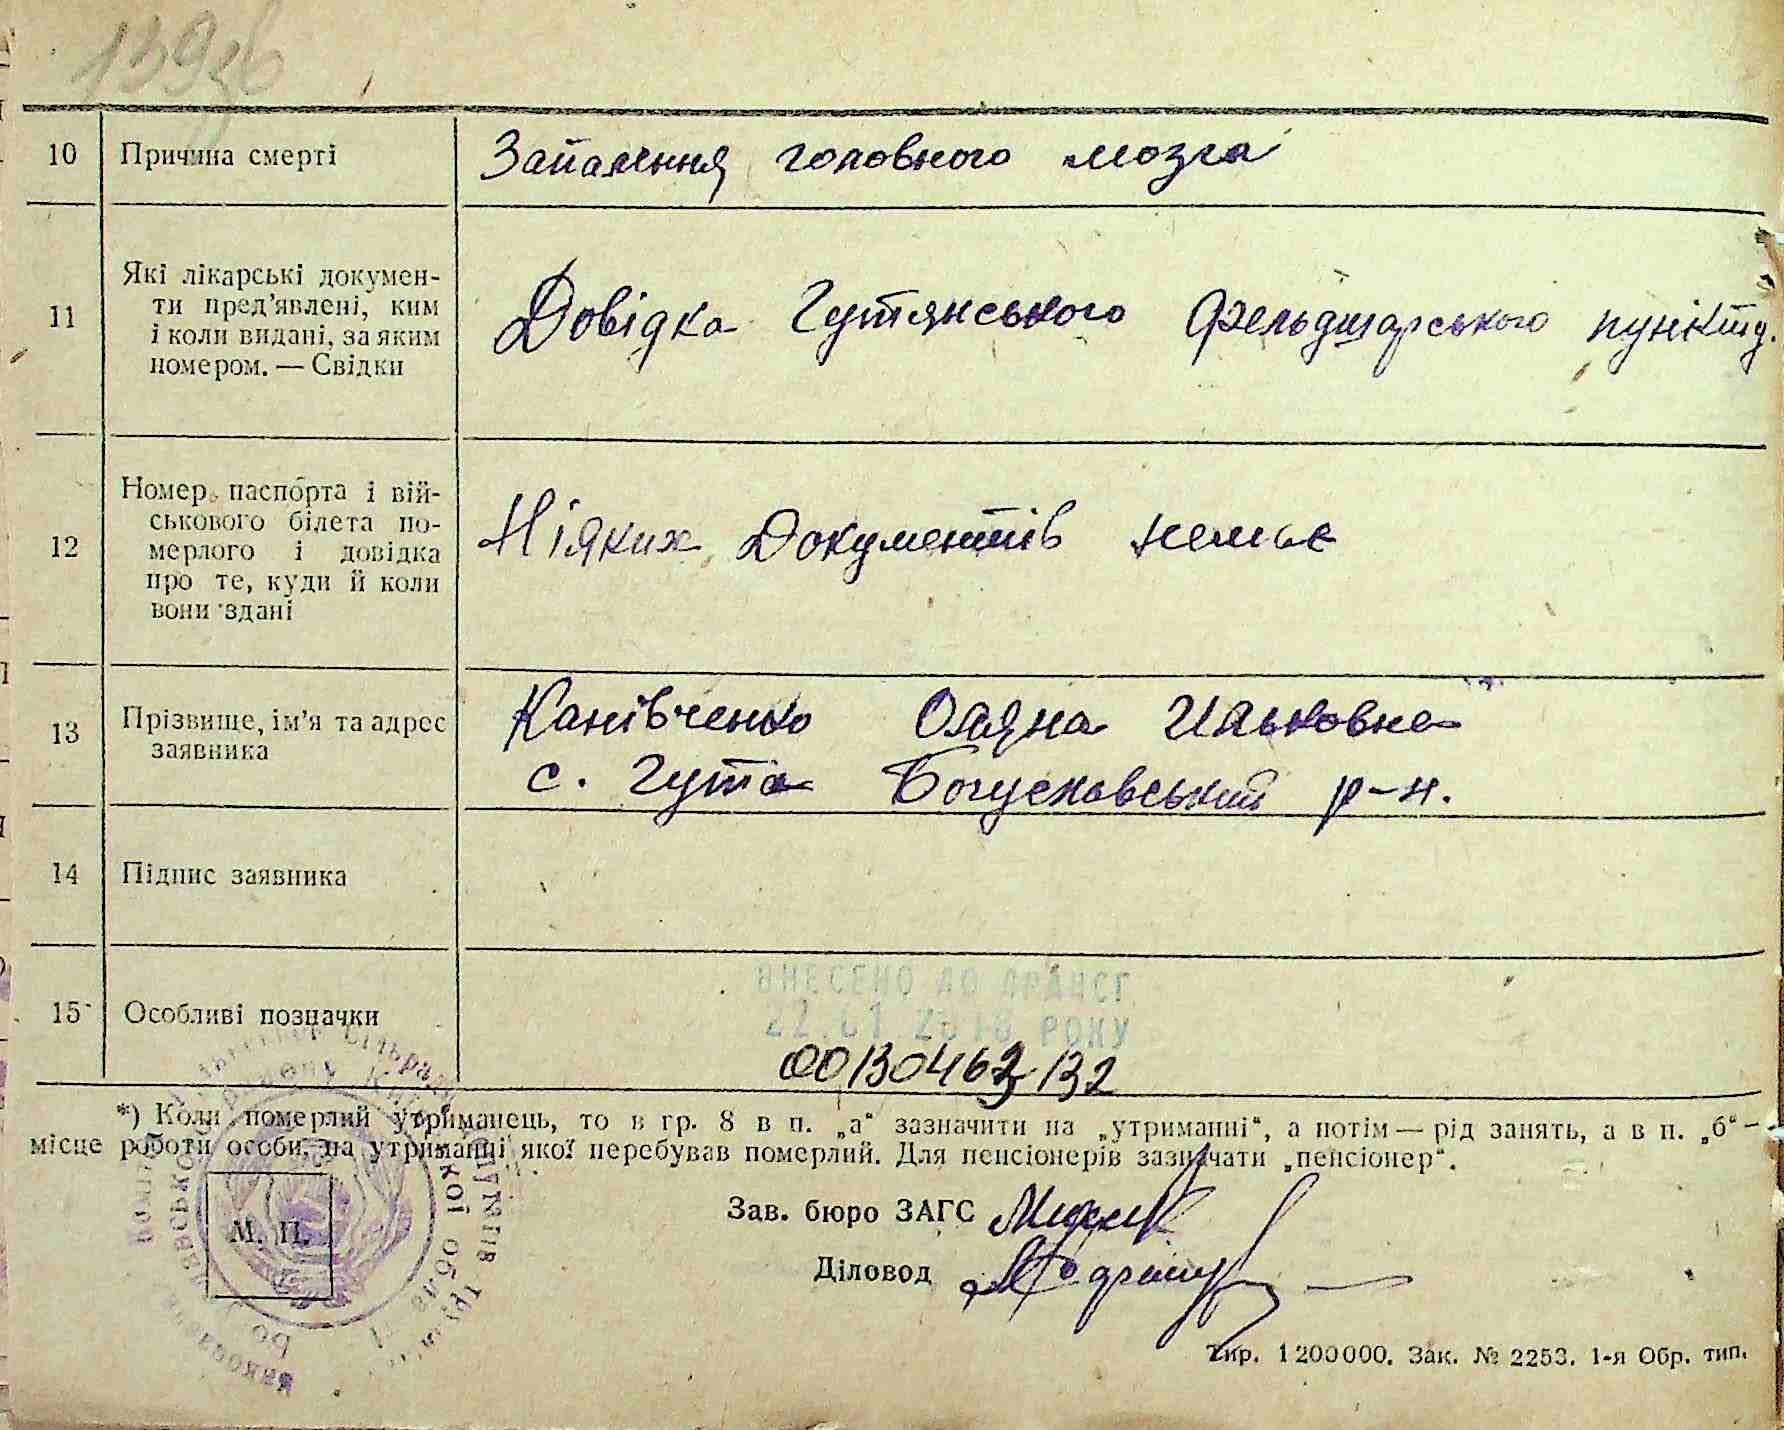 10 Причина смерті Запалення головного мозга
11 Які лікарські докумен-
ти пред'явлені, ким
і коли видані, за яким
номером. — Свідки
Довідка Гутянського фельдшарського пункту.
12 Номер паспорта і вій-
ськового білета по-
мерлого і довідка
про те, куди й коли
вони здані
Ніяких Документів немає
13 Прізвище, ім'я та адрес
заявника
Канівченко Оляна Ильковна
с. Гута Богуславський р-н.
14 Підпис заявника
15 Особливі позначки
ВНЕСЕНО ДО ДРАЦСГ
22.01.2018 РОКУ
*) Коли померлий утриманець, то в гр. 8 в п. „а“ зазначити на „утриманні“, а потім — рід занять, а в п. „б“ -
місце роботи особи, на утриманні якої перебував померлий. Для пенсіонерів зазначати „пенсіонер“.
М. П.
Зав. бюро ЗАГС
Діловод
Тир. 1200000. Зак. № 2253. 1-я Обр. тип.